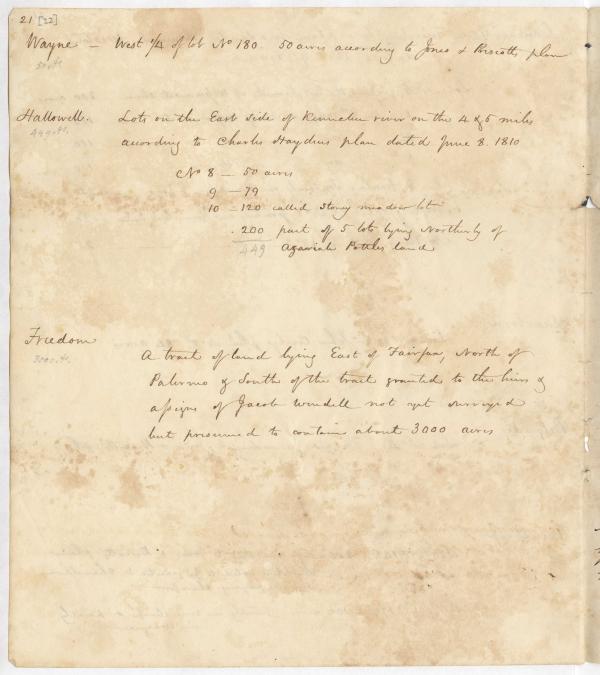 21 [22]
Wayne — West 1/4 of lot No 180. 50 acres according to Jones & Prescotts plan
50 As.
Hallowell. Lots on the East side of Kennebec river on the 4 & 5 miles
449 As. according to Charles Haydens plan dated June 8. 1810
No 8 — 50 acres
9 — 79
10 — 120 called Stoney meadow lot
200 part of 5 lots lying Northerly of
449 Azariah Pottles land
Freedom
3000 As.
A tract of land lying East of Fairfax, North of
Palermo & South of the tract granted to the heirs &
assigns of Jacob Wendell not yet surveyed
but presumed to contain about 3000 acres